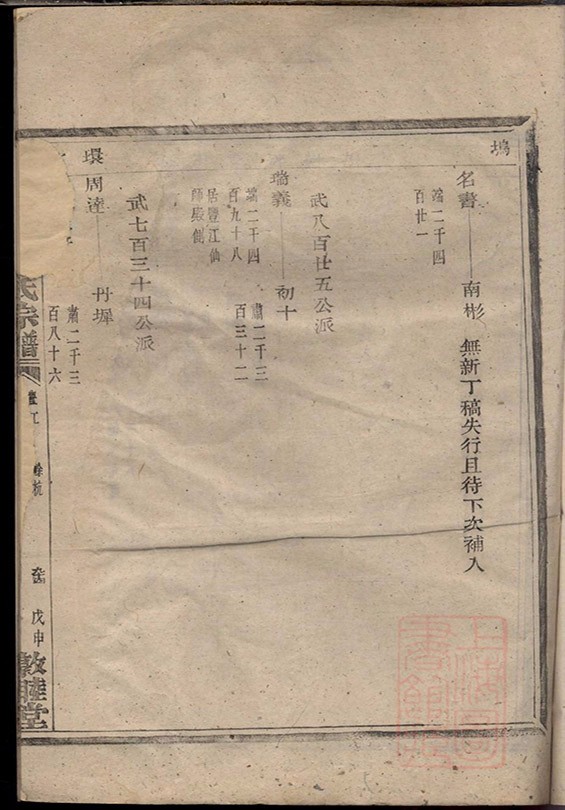 塢
名書
端二千四
百廿一
南彬
無新丁稿失行且待下次補入
武八百廿五公派
瑞義
端二千四
百九十八
居豐江仙
師殿側
初十
肅二千三
百三十二
武七百三十四公派
環
周達
丹墀
肅二千三
百八十六
氏宗譜
豐江
餘杭
戊申
敦睦堂